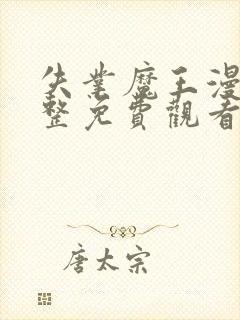 失業魔王漫
整免費觀看
唐太宗